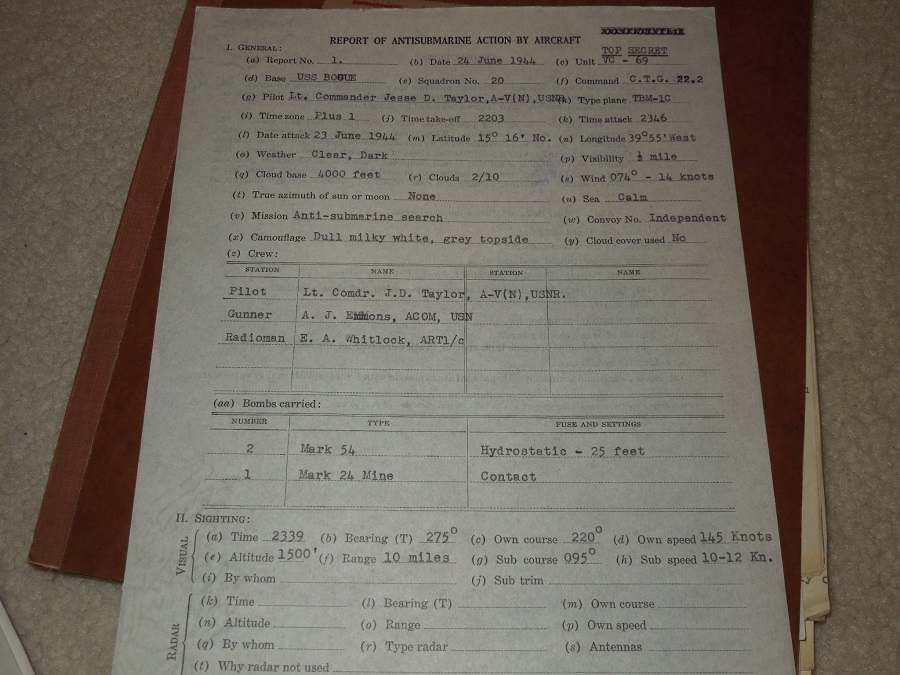 REPORT OF ANTISUBMARINE ACTION BY AIRCRAFT
TOP SECRET
I. GENERAL:
(a) Report No. 1. (b) Date 24 June 1944 (c) Unit VC - 69
(d) Base USS BOGUE (e) Squadron No. 20 (f) Command C.T.G. 22.2
(g) Pilot Lt. Commander Jesse D. Taylor,A-V(N),USNR (h) Type plane TBM-1C
(i) Time zone Plus 1 (j) Time take-off 2203 (k) Time attack 2346
(l) Date attack 23 June 1944 (m) Latitude 15° 16' No. (n) Longitude 39°55'West
(o) Weather Clear, Dark (p) Visibility ½ mile
(q) Cloud base 4000 feet (r) Clouds 2/10 (s) Wind 074° - 14 knots
(t) True azimuth of sun or moon None (u) Sea Calm
(v) Mission Anti-submarine search (w) Convoy No. Independent
(x) Camouflage Dull milky white, grey topside (y) Cloud cover used No
(z) Crew:
STATION NAME STATION NAME
Pilot Lt. Comdr. J.D. Taylor, A-V(N),USNR.
Gunner A. J. Emmons, ACOM, USN
Radioman E. A. Whitlock, ART1/c
(aa) Bombs carried:
NUMBER TYPE FUSE AND SETTINGS
2 Mark 54 Hydrostatic - 25 feet
1 Mark 24 Mine Contact
II. SIGHTING:
VISUAL
(a) Time 2339 (b) Bearing (T) 275° (c) Own course 220° (d) Own speed 145 Knots
(e) Altitude 1500' (f) Range 10 miles (g) Sub course 095° (h) Sub speed 10-12 Kn.
(i) By whom (j) Sub trim
RADAR
(k) Time (l) Bearing (T) (m) Own course
(n) Altitude (o) Range (p) Own speed
(q) By whom (r) Type radar (s) Antennas
(t) Why radar not used